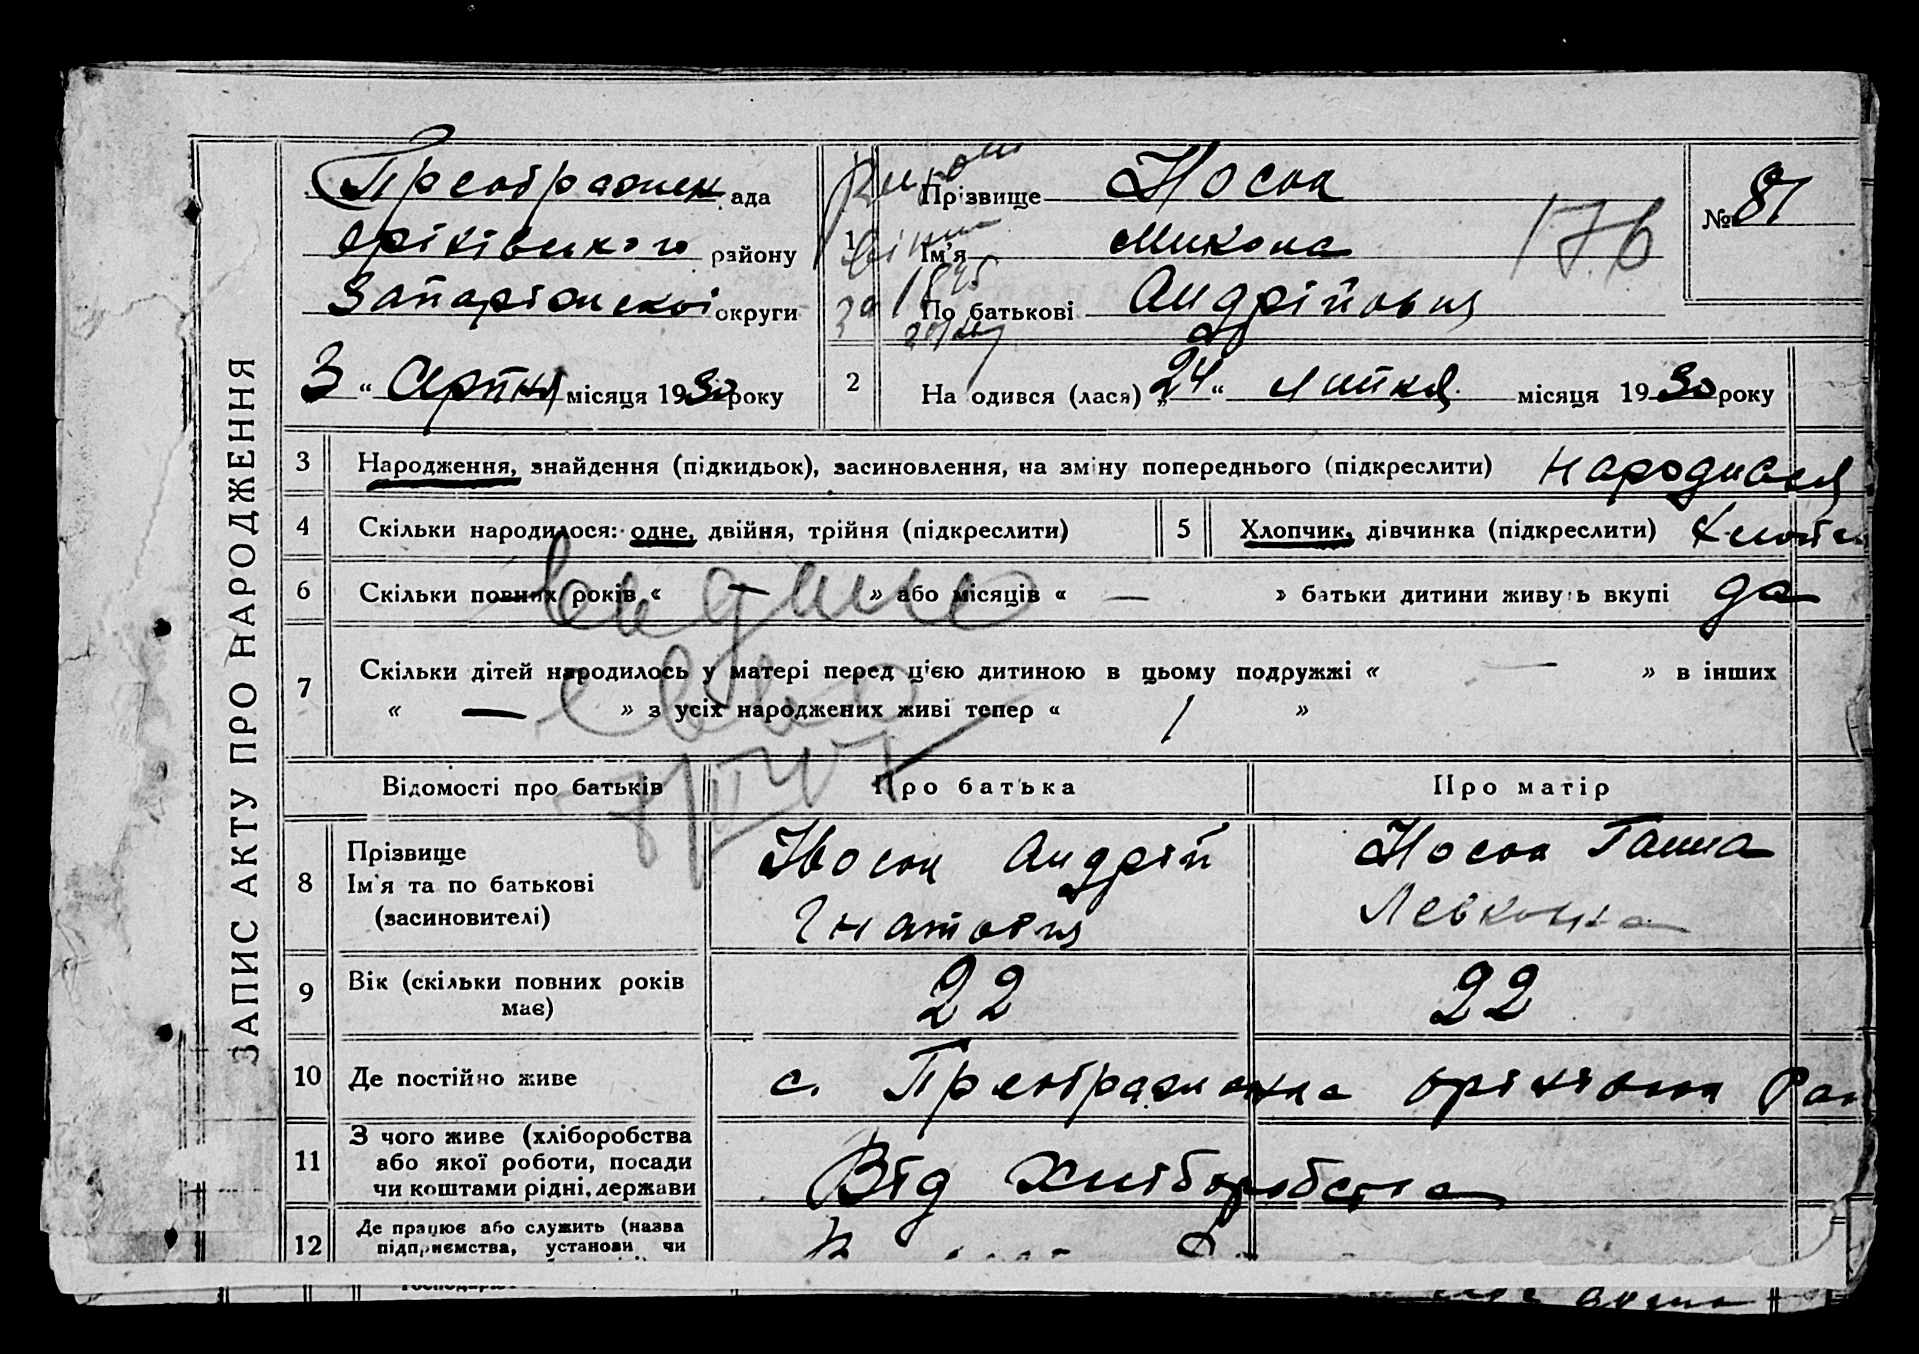 ЗАПИС АКТУ ПРО НАРОДЖЕННЯ
Преображен ада
Оріхівського району
Запорізької округи
3 “ Серпня місяця 1930 року
1 Прізвище Носок
Ім'я Микола
По батькові Андрійович
176
№ 81
2 На одився (лася) „ 24 “ Липня місяця 1930 року
3 Народження, знайдення (підкидьок), засиновлення, на зміну попереднього (підкреслити) народився
4 Скільки народилося: одне, двійня, трійня (підкреслити)
5 Хлопчик, дівчинка (підкреслити)
6 Скільки повних років « — » або місяців « — » батьки дитини живуть вкупі да
7 Скільки дітей народилось у матері перед цією дитиною в цьому подружжі « — » в інших
« — » з усіх народжених живі тепер « 1 »
видано
Відомості про батьків
Про батька
Про матір
8 Прізвище
Ім'я та по батькові
(засиновителі)
Носок Андрій
Гнатович
Носок Ганна
Левковна
9 Вік (скільки повних років
має)
22
22
10 Де постійно живе
с. Преображенка
11 З чого живе (хліборобства
або якої роботи, посади
чи коштами рідні, держави
Від Хліборобства
12 Де працює або служить (назва
підприємства, установи чи